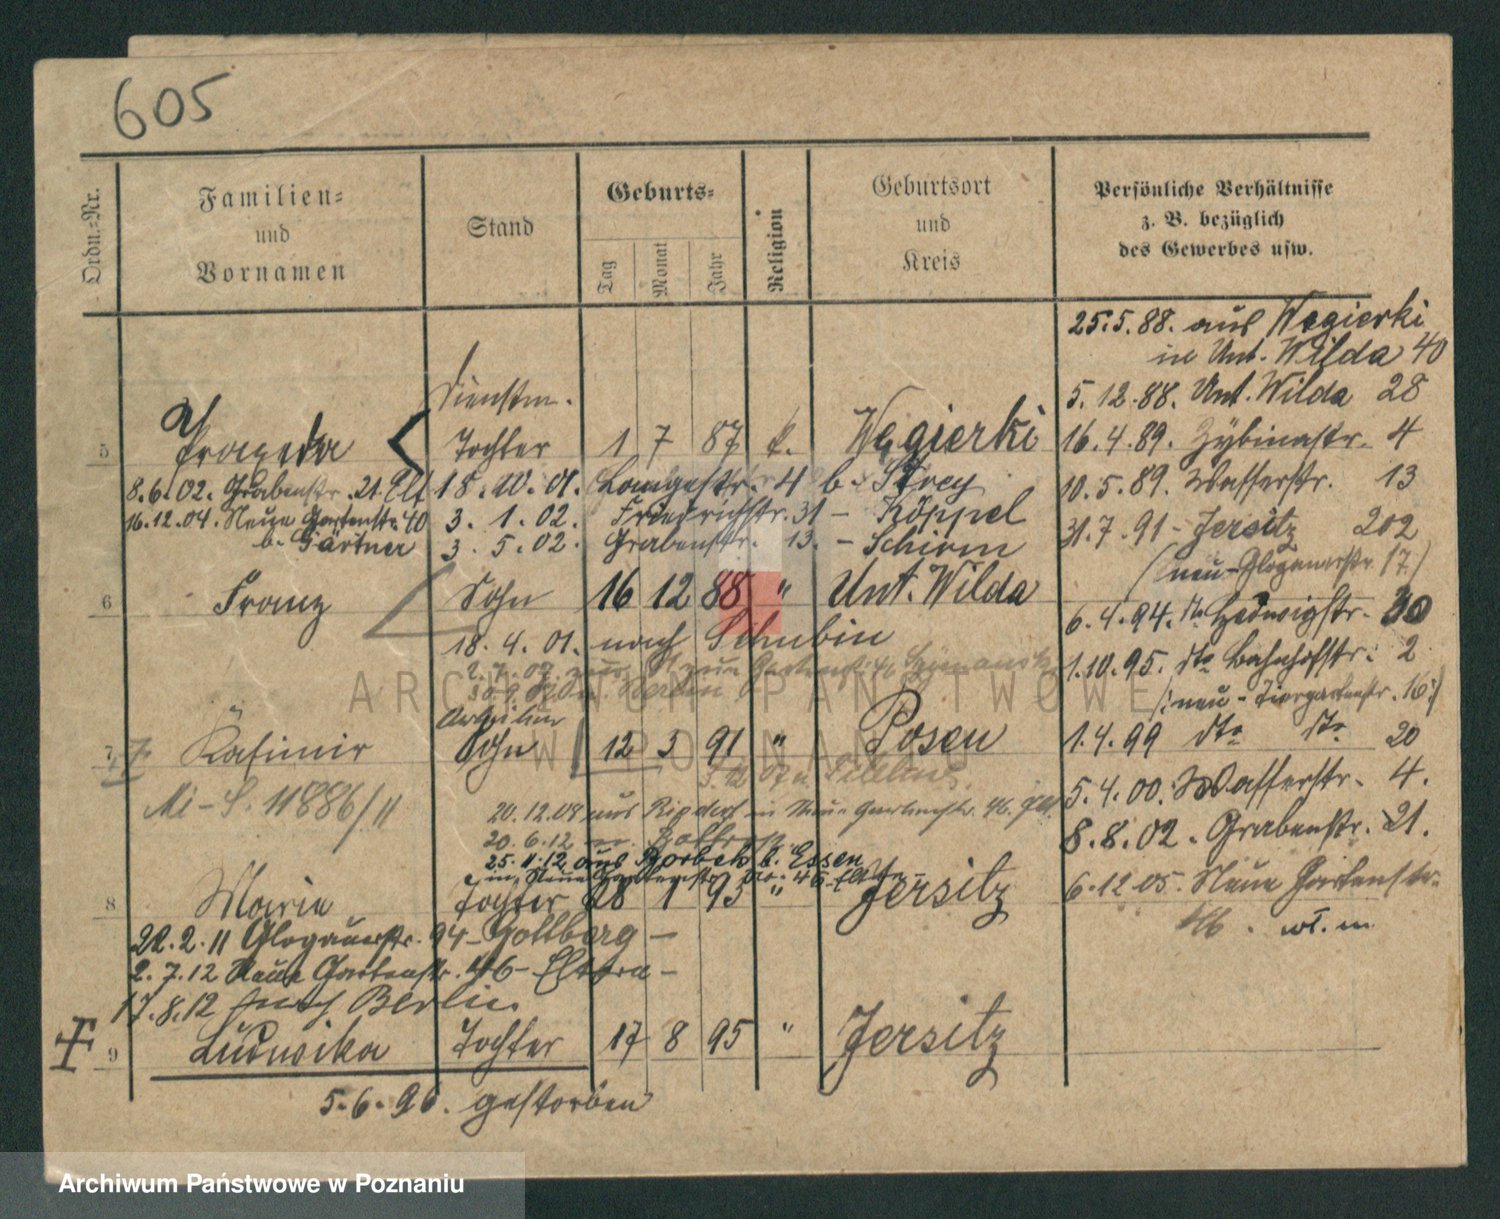 605
Ordn.=Nr.
Familien=
und
Vornamen
Stand
Geburts=
Tag
Monat
Jahr
Religion
Geburtsort
und
Kreis
Persönliche Verhältnisse
z. B. bezüglich
des Gewerbes usw.
25.5.88. aus Wegierki
in Unt. Wilda 40
5.12.88. Unt. Wilda 28
Dienstm.
5 Praxeda Tochter 1 7 87 k. Wegierki
16.4.89. Zybinastr. 4
8.6.02. Grabenstr. 21. Elt
18. 10. 01. Langestr. 4 b. Strey
10.5.89. Wasserstr. 13
16.12.04. Neue Gartenstr. 40
b. Gärtner
3. 1. 02. Friedrichstr. 31 - Köppel
3. 5. 02. Grabenstr. 13. - Schirm
31.7.91 - Jersitz 202
(neu - Glogauerstr. 17.)
6 Franz Sohn 16 12 88 " Unt. Wilda
6.4.94. dto Hedwigstr. 30
18. 4. 01. nach Schubin
1.10.95. dto Bahnhofstr. 2
(: neu - Tiergartenstr. 16 :)
Arbeiter
7 Kasimir Sohn 12 3 91 " Posen
1.4.99 dto dto 20
Mi - S. 11886/11
5.4.00. Wasserstr. 4.
20.12.09 aus in Neue Gartenstr. 46.
20.6.12 Bottrop
8.8.02. Grabenstr. 21.
25.11.12 aus Borbeck b. Essen
in Neue Gartenstr. 46 Eltern
8 Maria Tochter 28 1 93 " Jersitz
6.12.05. Neue Gartenstr.
46.
22.2.11 Glogauerstr. 94 - Gottberg -
2.7.12 Neue Gartenstr. 46 - Eltern -
17.8.12 nach Berlin.
9 Ludwika Tochter 17 8 95 " Jersitz
5.6.96. gestorben
ARCHIWUM PAŃSTWOWE
W POZNANIU
Archiwum Państwowe w Poznaniu